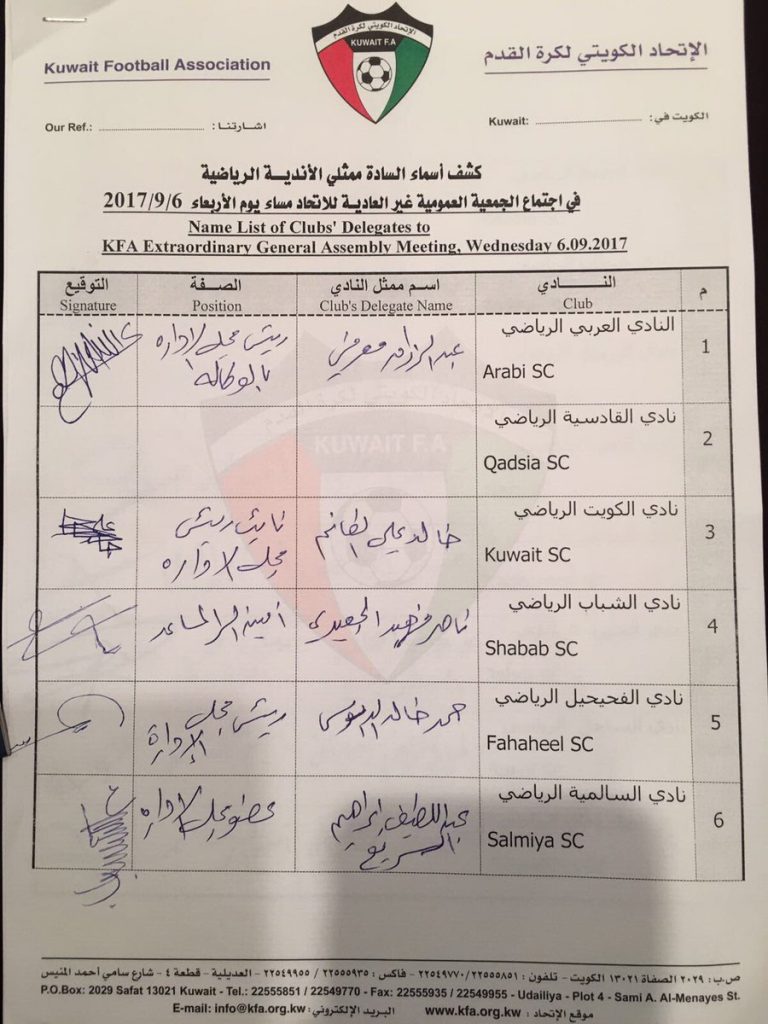 Kuwait Football Association
الإتحاد الكويتي لكرة القدم
الإتحاد الكويتي لكرة القدم
KUWAIT F.A
Our Ref.: .......................... اشارتنا :
Kuwait: .......................... الكويت في:
كشف أسماء السادة ممثلي الأندية الرياضية
في اجتماع الجمعية العمومية غير العادية للاتحاد مساء يوم الأربعاء 2017/9/6
Name List of Clubs' Delegates to
KFA Extraordinary General Assembly Meeting, Wednesday 6.09.2017
م
النــــادي
اسم ممثل النادي
الصفة
التوقيع
Club
Club's Delegate Name
Position
Signature
1
النادي العربي الرياضي
Arabi SC
عبد الرزاق معرفي
رئيس مجلس الاداره
بالوكاله
2
نادي القادسية الرياضي
Qadsia SC
KUWAIT F.A
3
نادي الكويت الرياضي
Kuwait SC
خالد علي الغانم
نائب رئيس
مجلس الاداره
4
نادي الشباب الرياضي
Shabab SC
ناصر
أمين السر المساعد
5
نادي الفحيحيل الرياضي
Fahaheel SC
حمد خالد الدبوس
رئيس مجلس
الإدارة
6
نادي السالمية الرياضي
Salmiya SC
عبد اللطيف ابراهيم
السريع
عضو مجلس الاداره
ص.ب: ٢٠٢٩ الصفاة ١٣٠٢١ الكويت - تلفون : ٢٢٥٥٥٨٥١/ ٢٢٥٤٩٧٧٠ - فاكس : ٢٢٥٥٥٩٣٥ / ٢٢٥٤٩٩٥٥ - العديلية - قطعة ٤ - شارع سامي أحمد المنيس
P.O.Box: 2029 Safat 13021 Kuwait - Tel.: 22555851 / 22549770 - Fax: 22555935 / 22549955 - Udailiya - Plot 4 - Sami A. Al-Menayes St.
E-mail: info@kfa.org.kw : البريد الإلكتروني www.kfa.org.kw : موقع الإتحاد